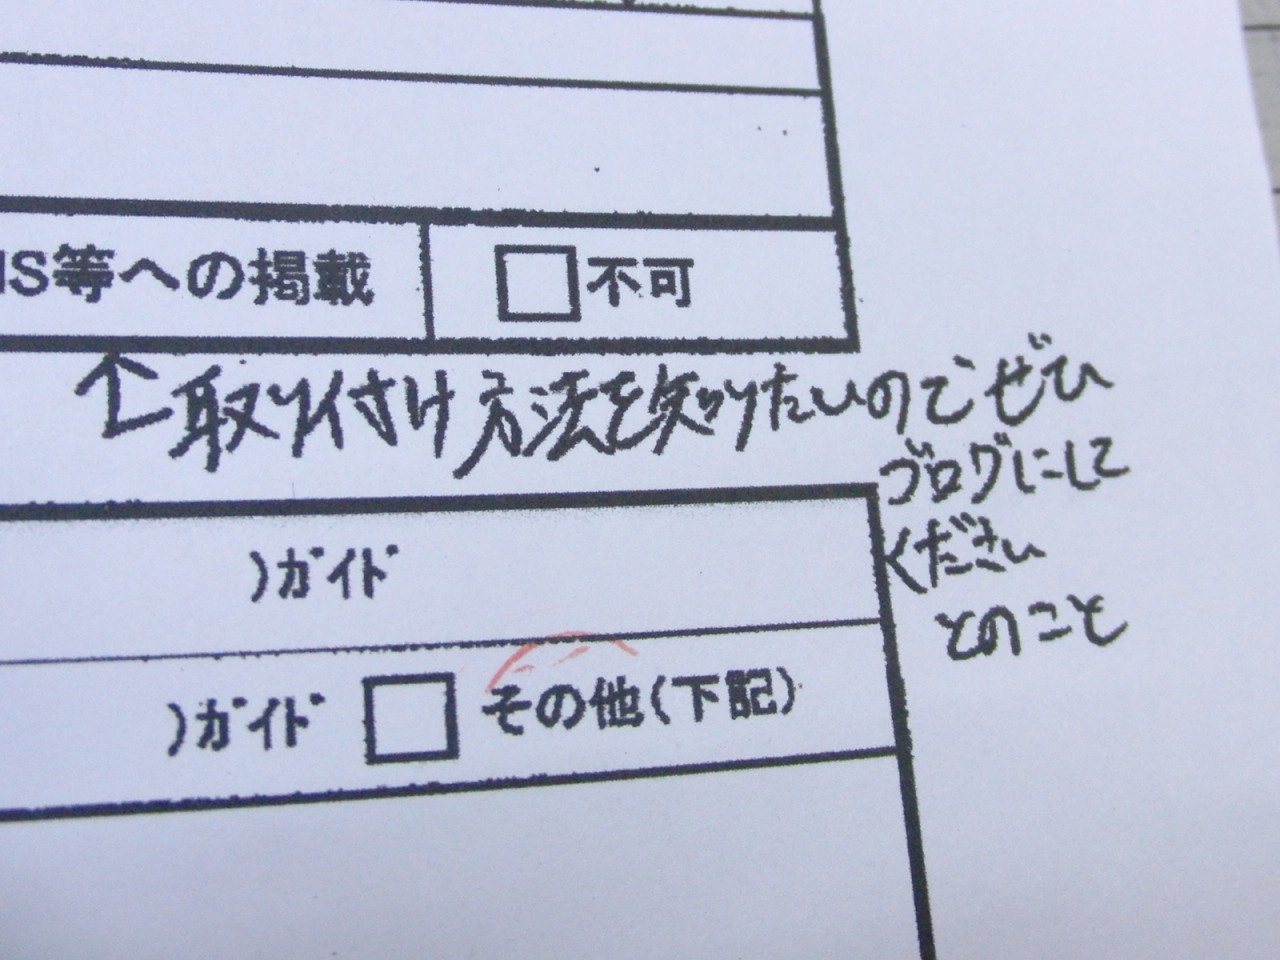 NS等への掲載 □不可
↑取り付け方法を知りたいのでぜひ
ブログにして
ください
とのこと
)ガイド
)ガイド □その他(下記)